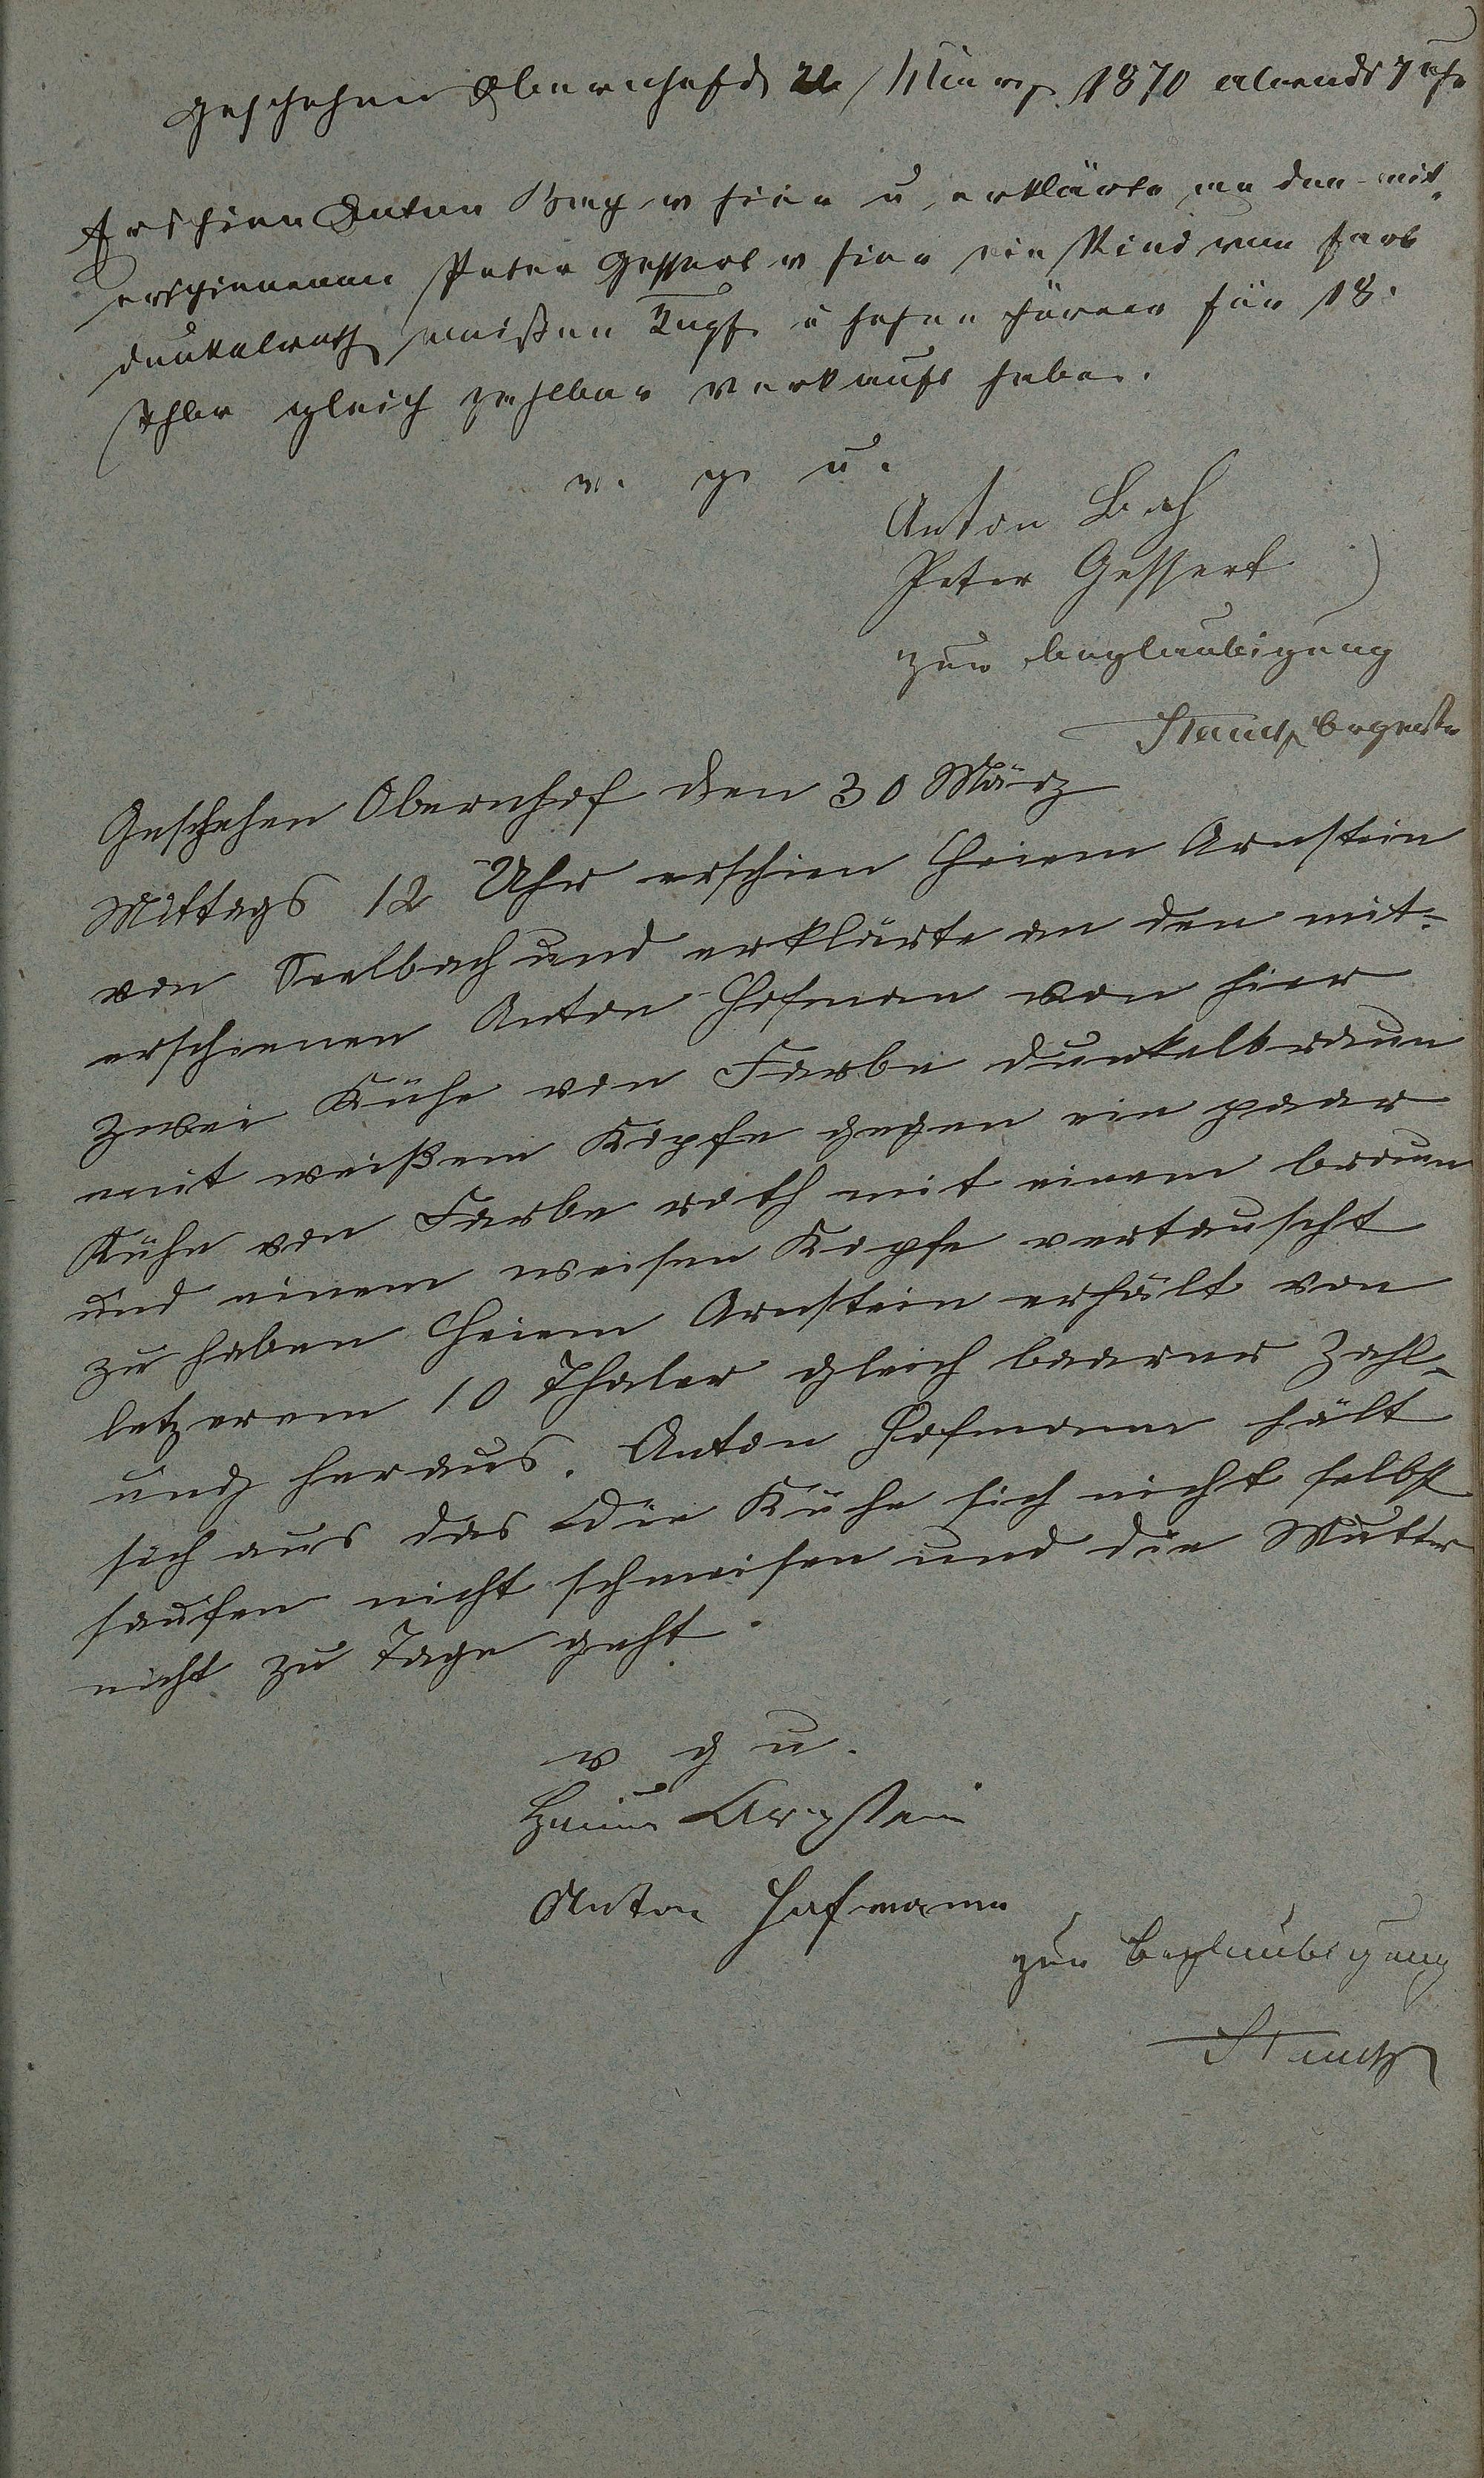 geschehen Obernhof d 22 März 1870 abends 7 uhr
Erschien Anton Bach v hier u erklärte an den mit-
erschienenen Peter Gessert v hier ein Rind von Farb
dunkelroth weißen Kopf u hohen Hörner für 18
Thlr gleich zahlbar verkauft haben.
v. g. u.
Anton Bach
Peter Gessert
zur beglaubigung
Stautz
Geschehen Obernhof den 30 März
Mittags 12 Uhr erschien Heiem Arnstein
von Seelbach und erklärte an den mit-
erschienen Anton Hofman von hier
zwei Kühe von Farbe dunkelbraun
mit weißem Kopfe gegen ein paar
Kühe von Farbe roth mit einem braun
und einem weisen Kopfe vertauscht
zu haben Heiem Arnstein erhält von
letzerem 10 Thaler gleich baarer Zahl-
ung heraus. Anton Hofmann hält
sich aus das die Kühe sich nicht selbst
saufen nicht schmeisen und die Mutter
nicht zu Tage geht.
v g u.
Heium Arnstein
Anton Hofmann
zur Beglaubigung
Stautz